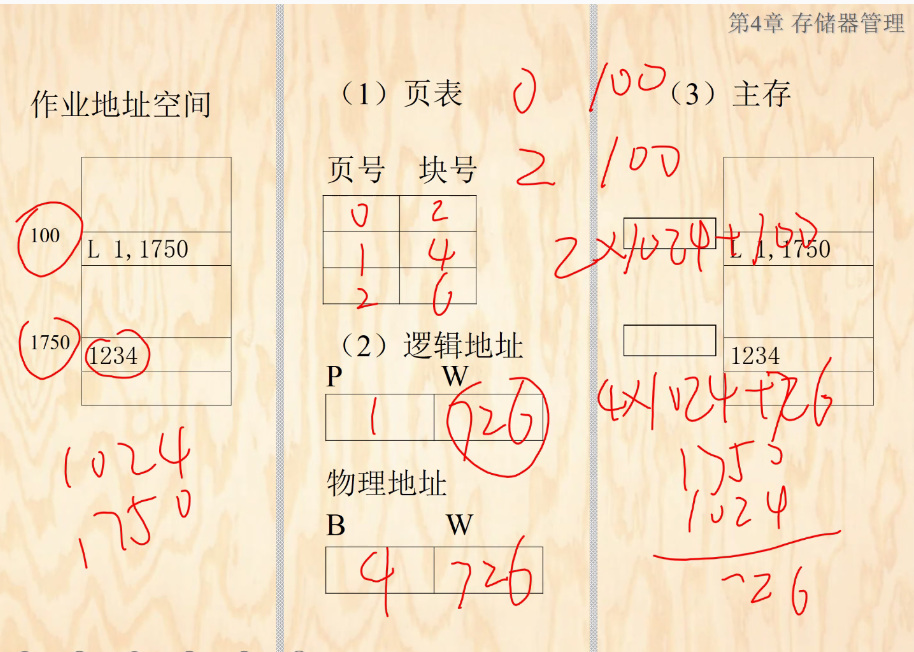 第4章 存储器管理
作业地址空间
100
L 1,1750
1750
1234
1024
1750
(1)页表
0 100
2 100
页号 块号
0 2
1 4
2 6
(2)逻辑地址
P W
1 726
物理地址
B W
4 726
(3)主存
2×1024+100
L 1,1750
1234
4×1024+726
1750
1024
726